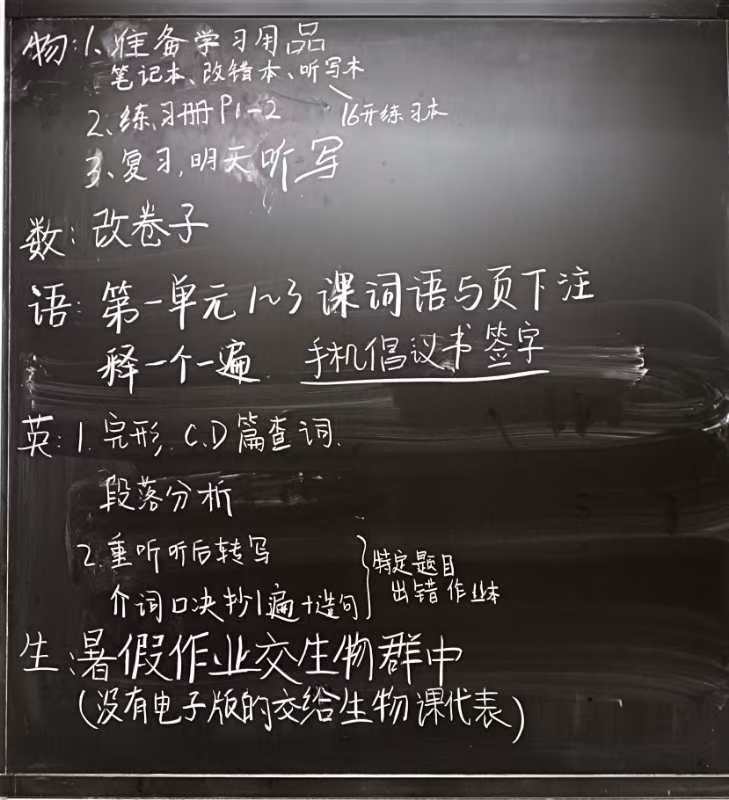 物:1、准备学习用品
笔记本、改错本、听写本
2、练习册P1-2
16开练习本
3、复习,明天听写
数:改卷子
语:第一单元1~3课词语与页下注
释一个一遍 手机倡议书签字
英:1.完形,C.D篇查词.
段落分析
2.重听听后转写
介词口决抄1遍+造句
特定题目
出错作业本
生:暑假作业交生物群中
(没有电子版的交给生物课代表)